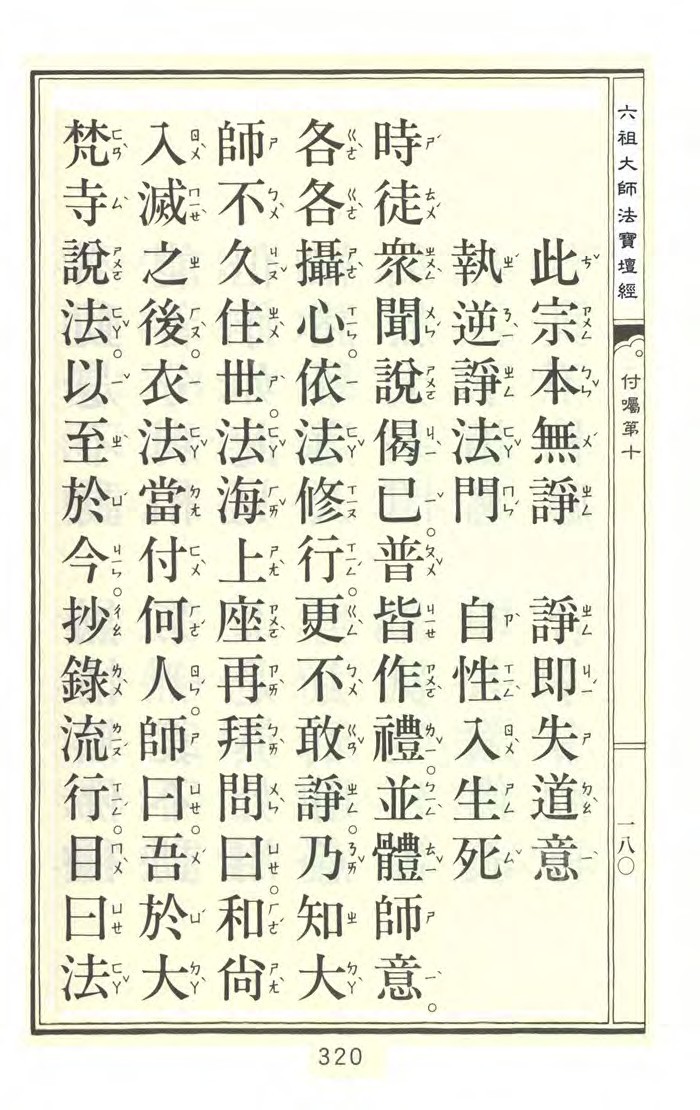 六祖大師法寶壇經 付囑第十 一八〇
此宗本無諍 諍即失道意
執逆諍法門 自性入生死
時徒眾聞說偈已。普皆作禮。並體師意。
各各攝心。依法修行。更不敢諍。乃知大
師不久住世。法海上座再拜問曰。和尚
入滅之後。衣法當付何人。師曰。吾於大
梵寺說法。以至於今。抄錄流行。目曰法
320